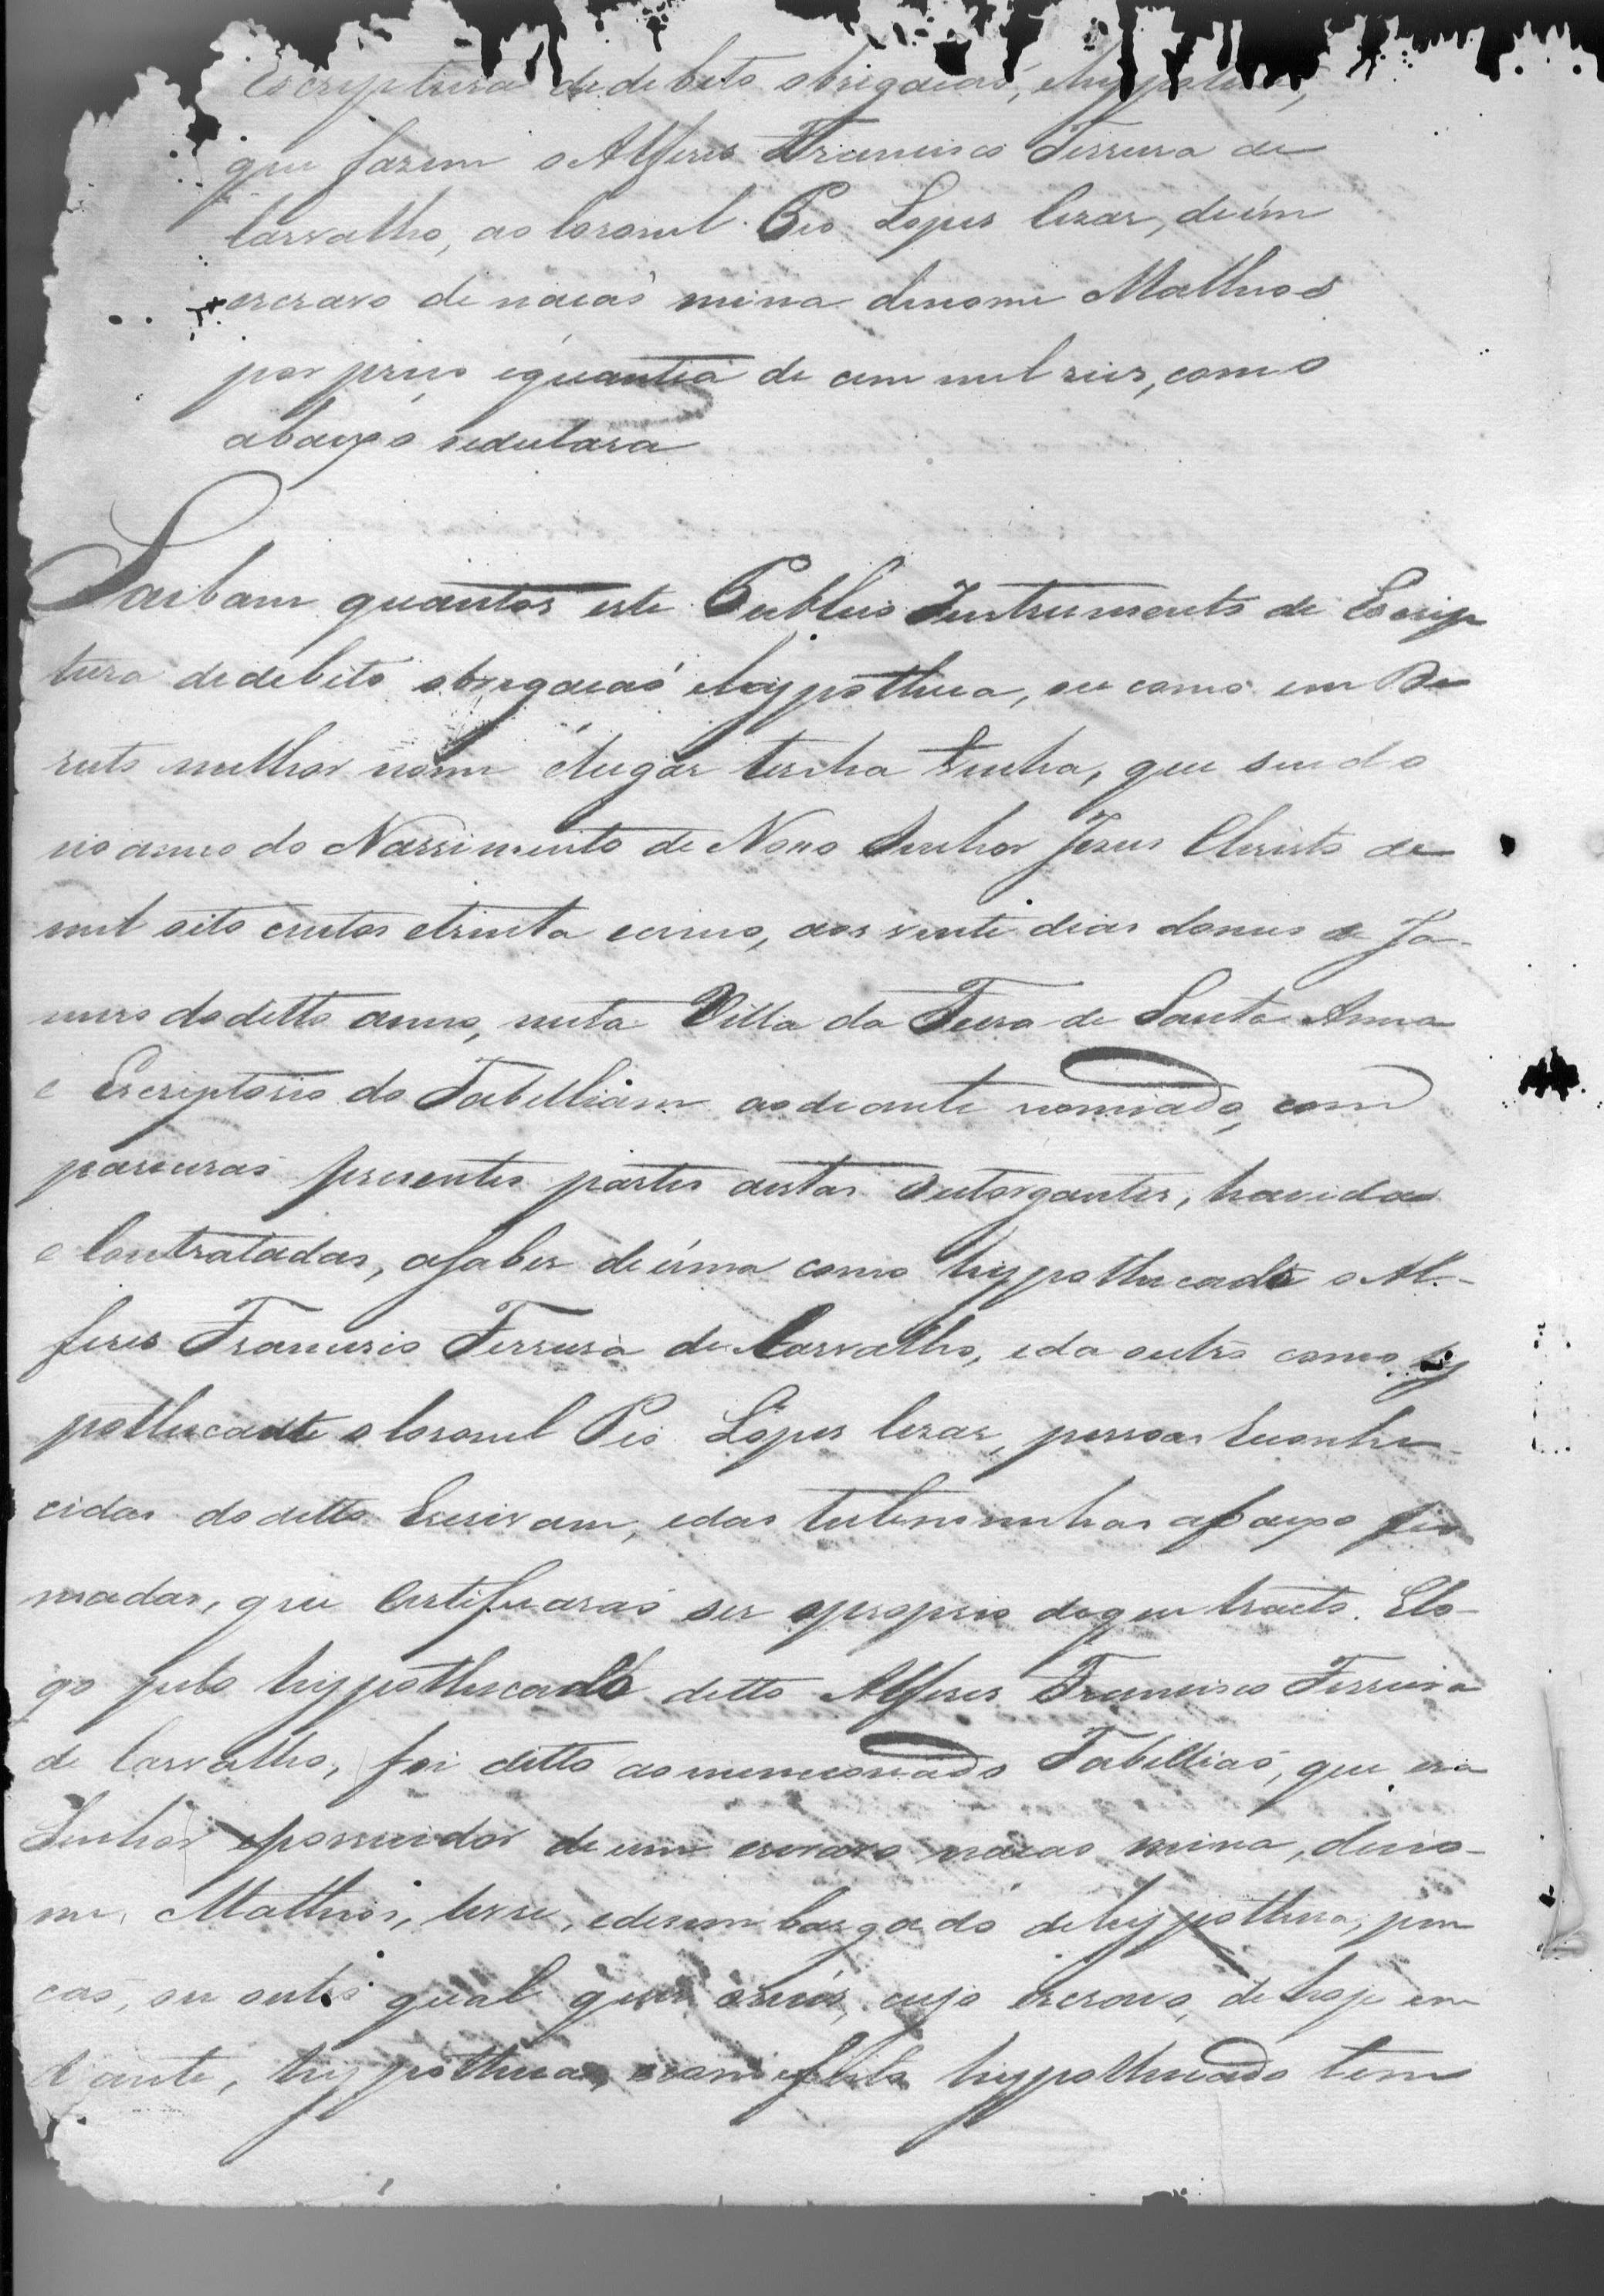 Escriptura de debito obrigacaõ, ehypotheca,
que fazem o Alferes Francisco Ferreira de
Carvalho, ao Coronel Pio Lopes Cezar, deúm
escravo de nacaõ mina denome Matheos
por preco equantia de cem mil reis, como
abaixo sedeclara
Saibam quantos este Publico Instrumento de Escrip
tura dedebito obrigacaõ ehypotheca, ou como em De
reito melhor nome elugar tenha tenha, que sendo
no anno do Nassimento de Nosso Senhor Jezus Christo de
mil oito centos etrinta ecinco, aos vinte dias domes de Ja-
neiro do ditto anno, nesta Villa da Feira de Santa Anna
e Escriptorio do Tabelliam aodeante nomiado, com
pareceraõ prezentes partes aestas Outorgantes, havidas
e Contratadas, asaber deúma como hypothecado o Al-
feres Francisco Ferreira de Carvalho, eda outra como hy
pothecante o Coronel Pio Lopes Cezar, pessoas reconhe-
cidas do ditto Escrivam, edas testemunhas abaixo fir
madas, que Certificaraõ ser oproprio dequetracto. Elo-
go pelo hypothecado ditto Alferes Francisco Ferreira
de Carvalho, foi ditto aomencionado Tabelliaõ, que era
Senhor epossuidor deum escravo nacaõ mina, deno-
me Matheos, livre, edesembargado dehypotheca, pen
çaõ, ou outro qual quer onus, cujo escravo, dehoje em
diante, hypotheca, ecom effeito hypothecado tem